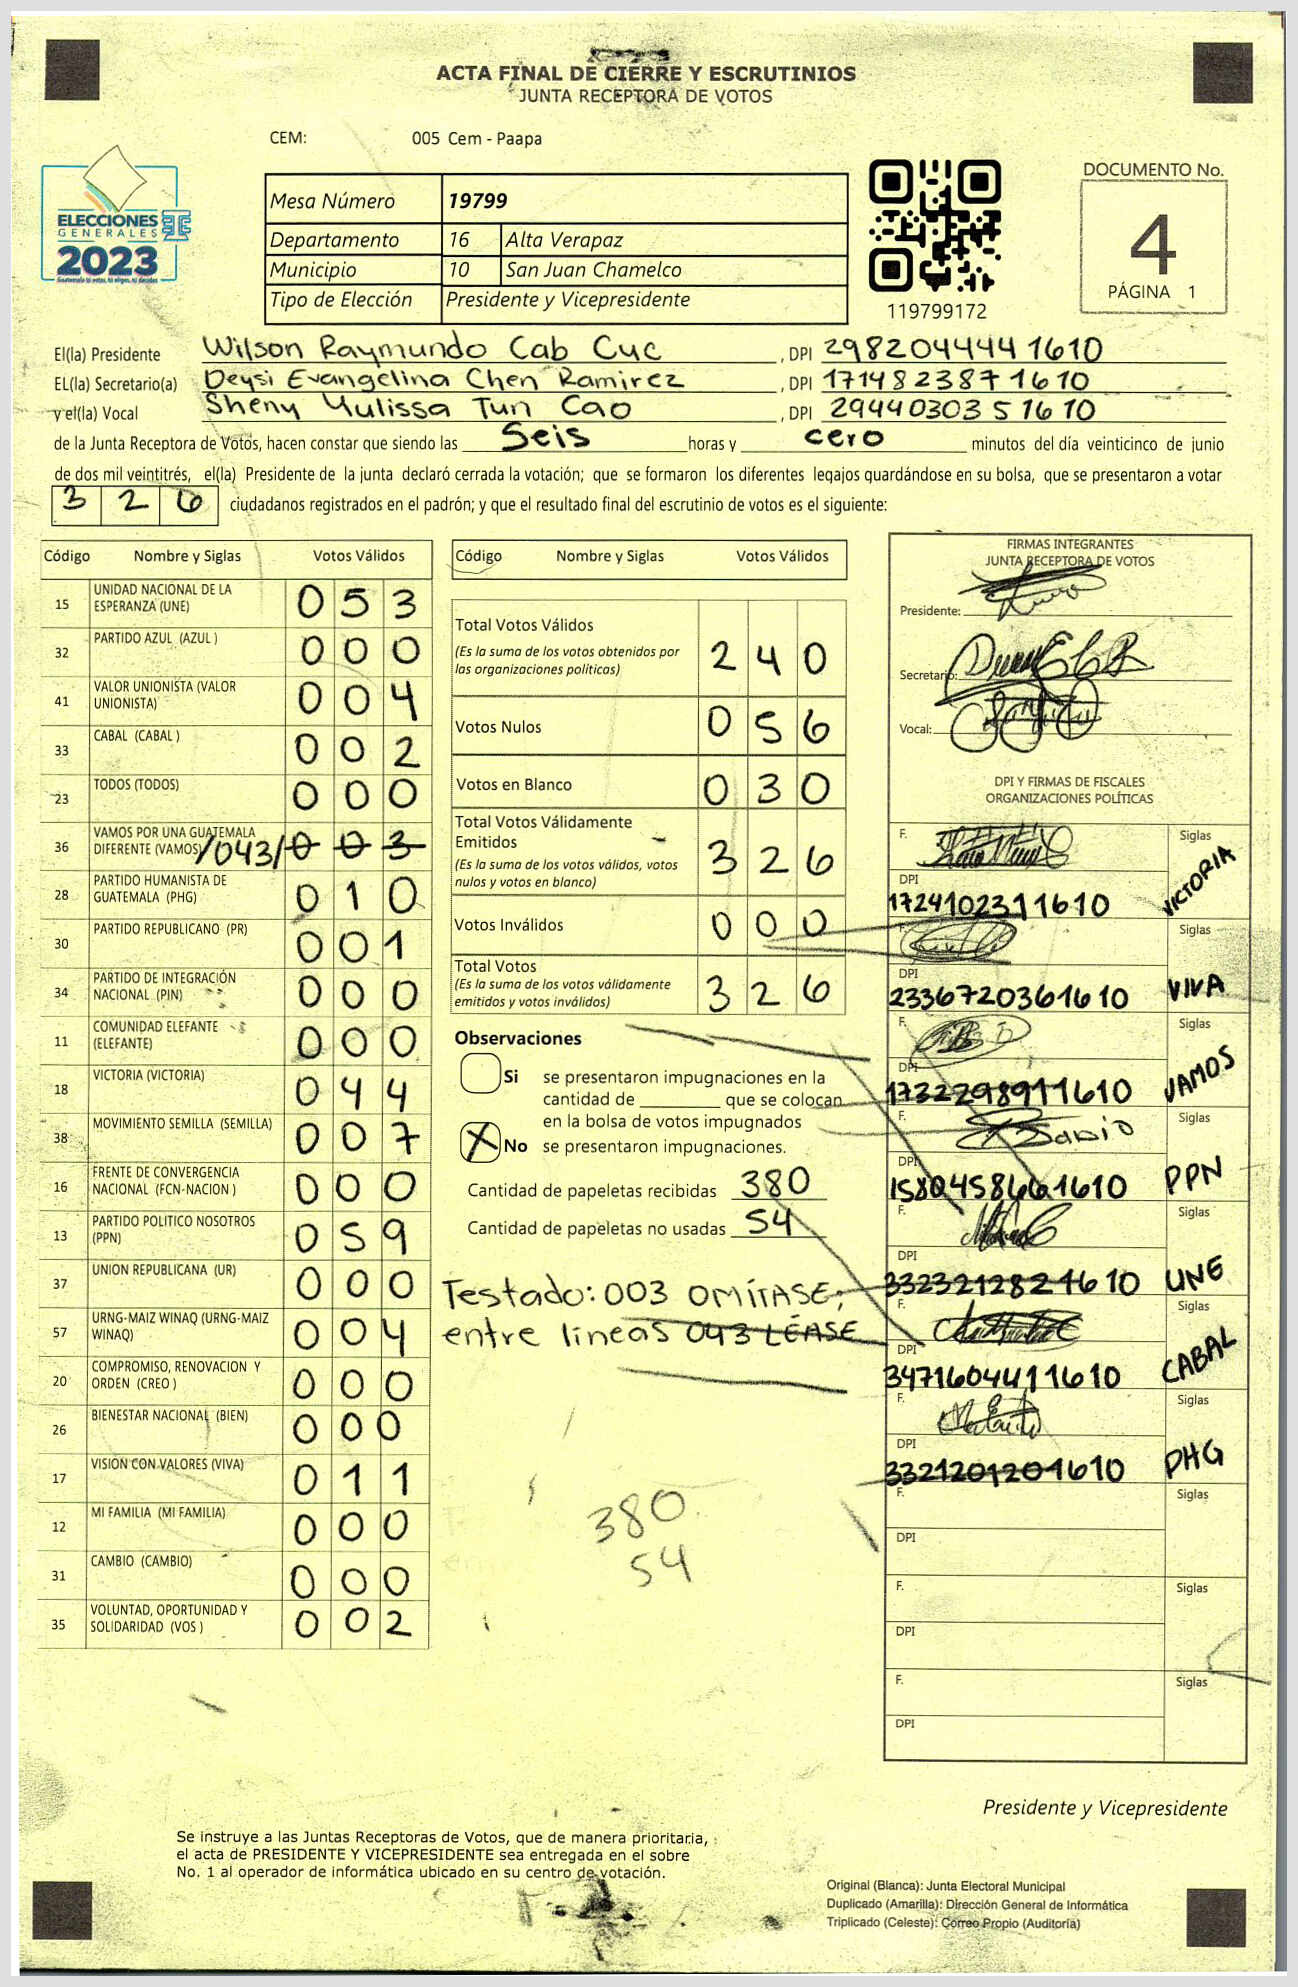 ACTA FINAL DE CIERRE Y ESCRUTINIOS
JUNTA RECEPTORA DE VOTOS
CEM: 005 Cem - Paapa
ELECCIONES
GENERALES
2023
Mesa Número 19799
Departamento 16 Alta Verapaz
Municipio 10 San Juan Chamelco
Tipo de Elección Presidente y Vicepresidente
119799172
DOCUMENTO No.
4
PÁGINA 1
El(la) Presidente Wilson Raymundo Cab Cuc , DPI 2982044441610
EL(la) Secretario(a) Deysi Evangelina Chen Ramirez , DPI 1714823871610
y el(la) Vocal Sheny Yulissa Tun Cao , DPI 2944030351610
de la Junta Receptora de Votos, hacen constar que siendo las Seis horas y cero minutos del día veinticinco de junio
de dos mil veintitrés, el(la) Presidente de la junta declaró cerrada la votación; que se formaron los diferentes legajos guardándose en su bolsa, que se presentaron a votar
326 ciudadanos registrados en el padrón; y que el resultado final del escrutinio de votos es el siguiente:
Código Nombre y Siglas Votos Válidos
15 UNIDAD NACIONAL DE LA ESPERANZA (UNE) 053
32 PARTIDO AZUL (AZUL ) 000
41 VALOR UNIONISTA (VALOR UNIONISTA) 004
33 CABAL (CABAL ) 002
23 TODOS (TODOS) 000
36 VAMOS POR UNA GUATEMALA DIFERENTE (VAMOS) /043/ 003
28 PARTIDO HUMANISTA DE GUATEMALA (PHG) 010
30 PARTIDO REPUBLICANO (PR) 001
34 PARTIDO DE INTEGRACIÓN NACIONAL (PIN) 000
11 COMUNIDAD ELEFANTE (ELEFANTE) 000
18 VICTORIA (VICTORIA) 044
38 MOVIMIENTO SEMILLA (SEMILLA) 007
16 FRENTE DE CONVERGENCIA NACIONAL (FCN-NACION ) 000
13 PARTIDO POLITICO NOSOTROS (PPN) 059
37 UNION REPUBLICANA (UR) 000
57 URNG-MAIZ WINAQ (URNG-MAIZ WINAQ) 004
20 COMPROMISO, RENOVACION Y ORDEN (CREO ) 000
26 BIENESTAR NACIONAL (BIEN) 000
17 VISION CON VALORES (VIVA) 011
12 MI FAMILIA (MI FAMILIA) 000
31 CAMBIO (CAMBIO) 000
35 VOLUNTAD, OPORTUNIDAD Y SOLIDARIDAD (VOS ) 002
Código Nombre y Siglas Votos Válidos
Total Votos Válidos
(Es la suma de los votos obtenidos por las organizaciones políticas) 240
Votos Nulos 056
Votos en Blanco 030
Total Votos Válidamente Emitidos
(Es la suma de los votos válidos, votos nulos y votos en blanco) 326
Votos Inválidos 000
Total Votos
(Es la suma de los votos válidamente emitidos y votos inválidos) 326
Observaciones
Si se presentaron impugnaciones en la
cantidad de ________ que se colocan
en la bolsa de votos impugnados
X No se presentaron impugnaciones.
Cantidad de papeletas recibidas 380
Cantidad de papeletas no usadas 54
Testado: 003 OMÍTASE;
entre lineas 043 LÉASE
380
54
FIRMAS INTEGRANTES
JUNTA RECEPTORA DE VOTOS
Presidente:
Secretario:
Vocal:
DPI Y FIRMAS DE FISCALES
ORGANIZACIONES POLÍTICAS
F. Siglas
DPI
1724102311610 VICTORIA
F. Siglas
DPI
2336720361610 VIVA
F. Siglas
DPI
1732298911610 VAMOS
F. Siglas
DPI
1580458661610 PPN
F. Siglas
DPI
3323212821610 UNE
F. Siglas
DPI
3471604411610 CABAL
F. Siglas
DPI
3321201201610 PHG
F. Siglas
DPI
F. Siglas
DPI
F. Siglas
DPI
Presidente y Vicepresidente
Se instruye a las Juntas Receptoras de Votos, que de manera prioritaria,
el acta de PRESIDENTE Y VICEPRESIDENTE sea entregada en el sobre
No. 1 al operador de informática ubicado en su centro de votación.
Original (Blanca): Junta Electoral Municipal
Duplicado (Amarilla): Dirección General de Informática
Triplicado (Celeste): Correo Propio (Auditoría)